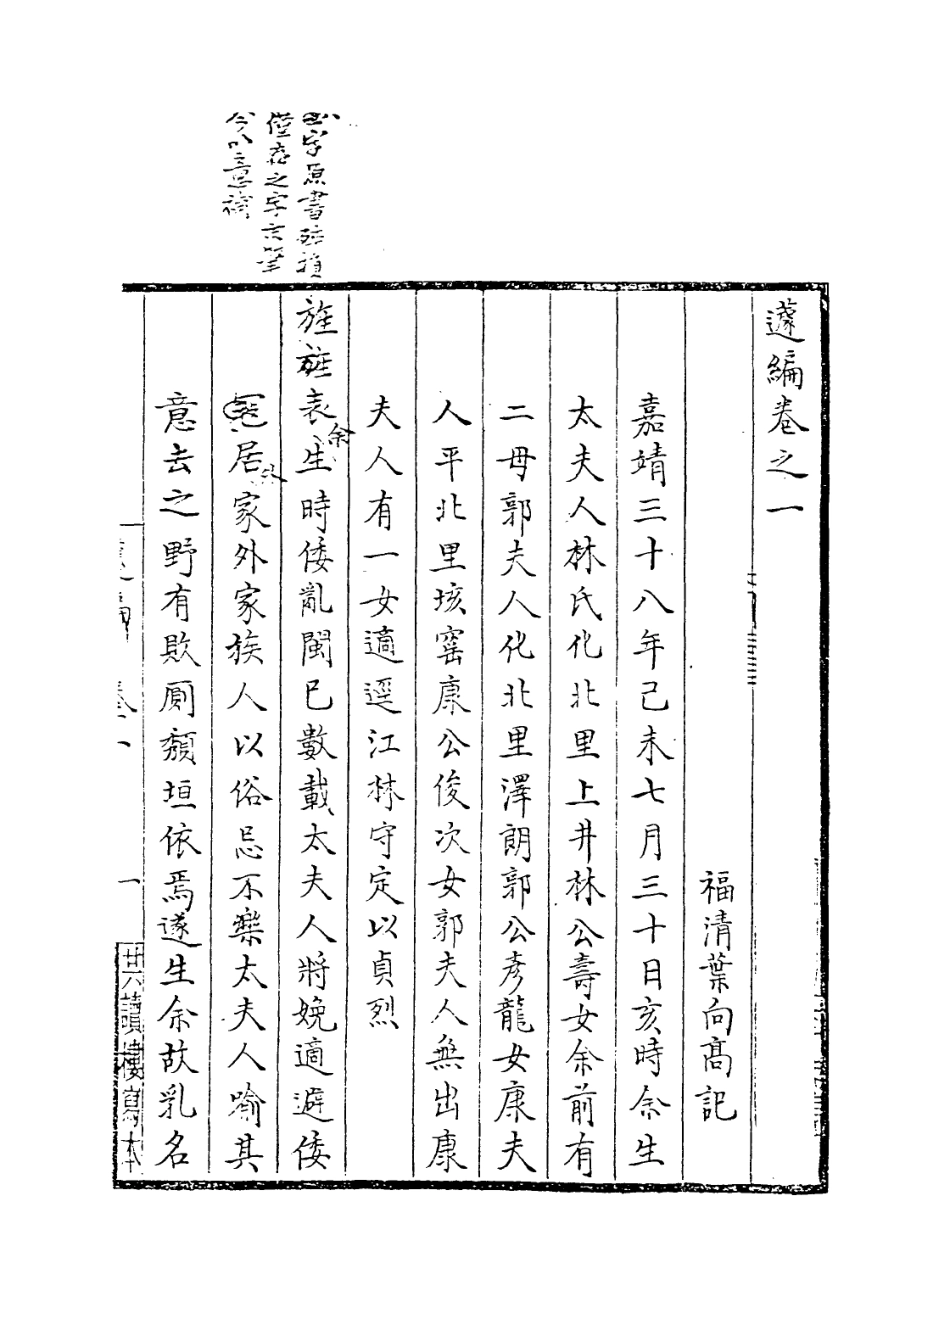 蘧編卷之一
福清葉向高記
嘉靖三十八年己未七月三十日亥時余生
太夫人林氏化北里上井林公壽女余前有
二母郭夫人化北里澤朗郭公彥龍女康夫
人平北里垓窰康公俊次女郭夫人無出康
夫人有一女適逕江林守定以貞烈
旌旌表余生時倭亂閩已數載太夫人將娩適避倭
居外家外家族人以俗忌不樂太夫人喻其
意去之野有敗厠頹垣依焉遂生余故乳名
字原書破損
僅存之字
今以意補
卷一
一
廿六讀樓寫本